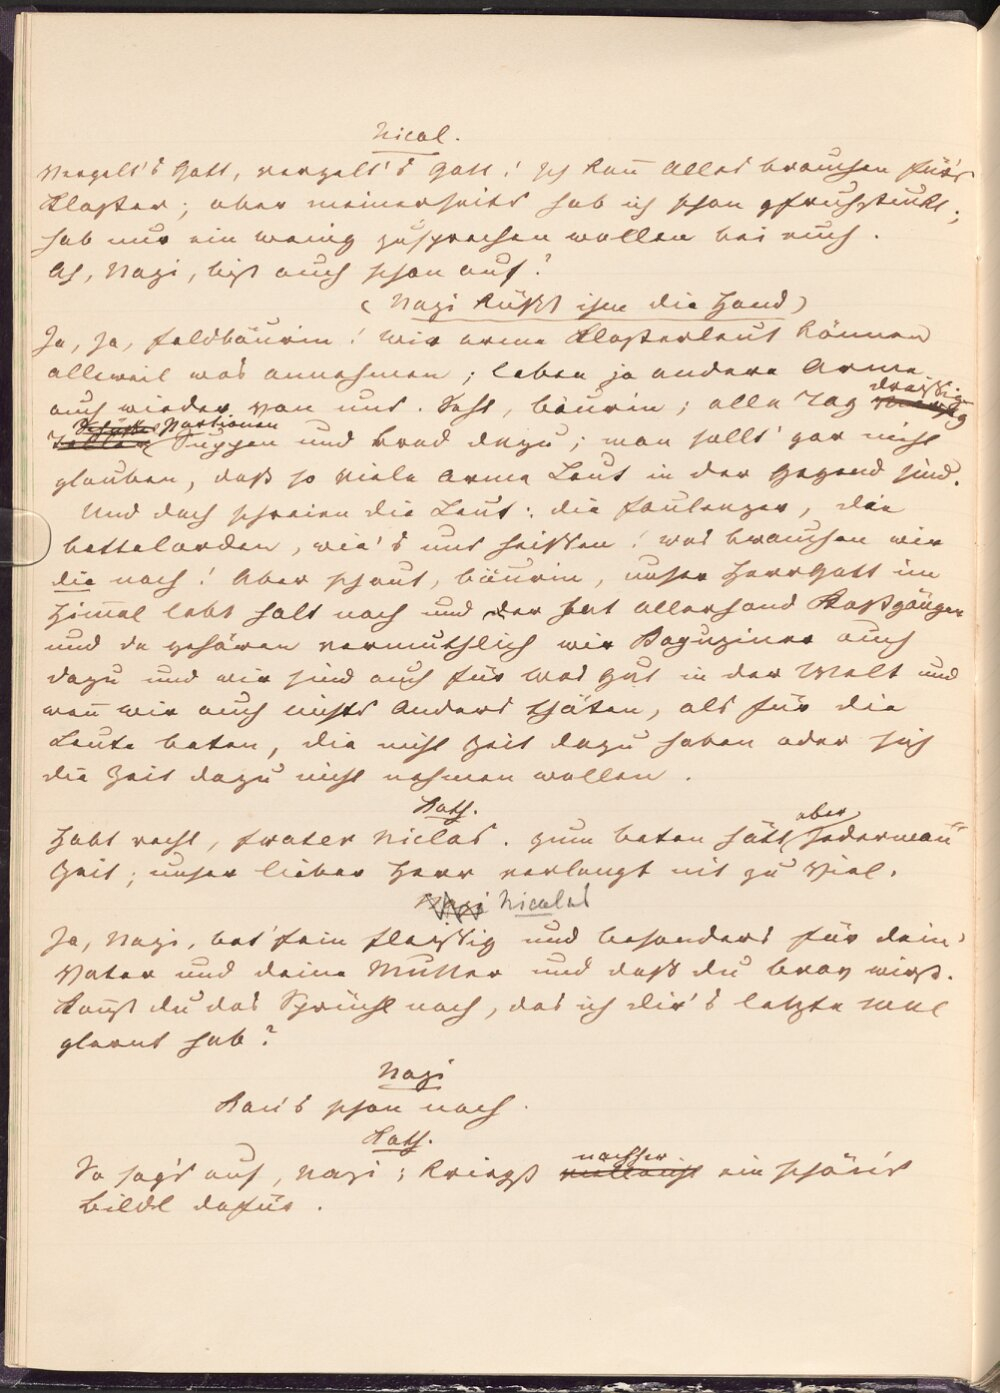 Nicol.
Vergelt's Gott, vergelt's Gott! Ich kan̅ Alles brauchen für's
Kloster; aber meinerseits hab ich schon gfruhstuckt;
hab nur ein wenig zusprechen wollen bei euch.
Ah, Nazi, bist auch schon auf?
(Nazi küßt ihm die Hand)
Ja, Ja, Feldbäurin! wir arme Klosterleut können
alleweil was annehmen; leben ja andere Arme
dreissig
auch wieder von uns. Seht, Bäurin; alle Tag
Portionen
Suppen und Brod dazu; man sollt' gar nicht
glauben, daß so viele arme Leut in der Gegend sind.
Und doch schreien die Leut: die Faulenzer, die
Bettelorden, wie's uns heißen! was brauchen wir
die noch! Aber schaut, Bäurin, unser Herrgott im
Him̅el lebt halt noch und der hat allerhand Kostgänger
und da gehören vermuthlich wir Kapuziner auch
dazu und wir sind auch für was gut in der Welt und
wen̅ wir auch nichts Anders thäten, als für die
Leute beten, die nicht Zeit dazu haben oder sich
die Zeit dazu nicht nehmen wollen.
Kath.
aber
Habt recht, Frater Niclas. Zum beten hätt Jederman̅
Zeit; unser lieber Herr verlangt nit zu Viel.
Nazi Nicolas
Ja, Nazi, bet' fein fleissig und besonders für dein'
Vater und deine Mutter und daß du brav wirst.
Kan̅st du das Sprüchl noch, das ich dir's letzte mal
glernt hab?
Nazi
Kan̅'s schon noch.
Kath.
nachher
So sag's auf, Nazi; kriegst vielleicht ein schön's
Bildl dafür.